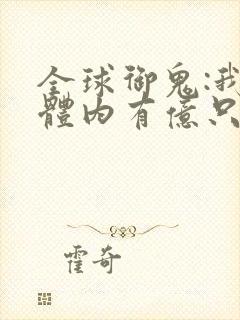 全球御鬼:我
體內有億只
霍奇